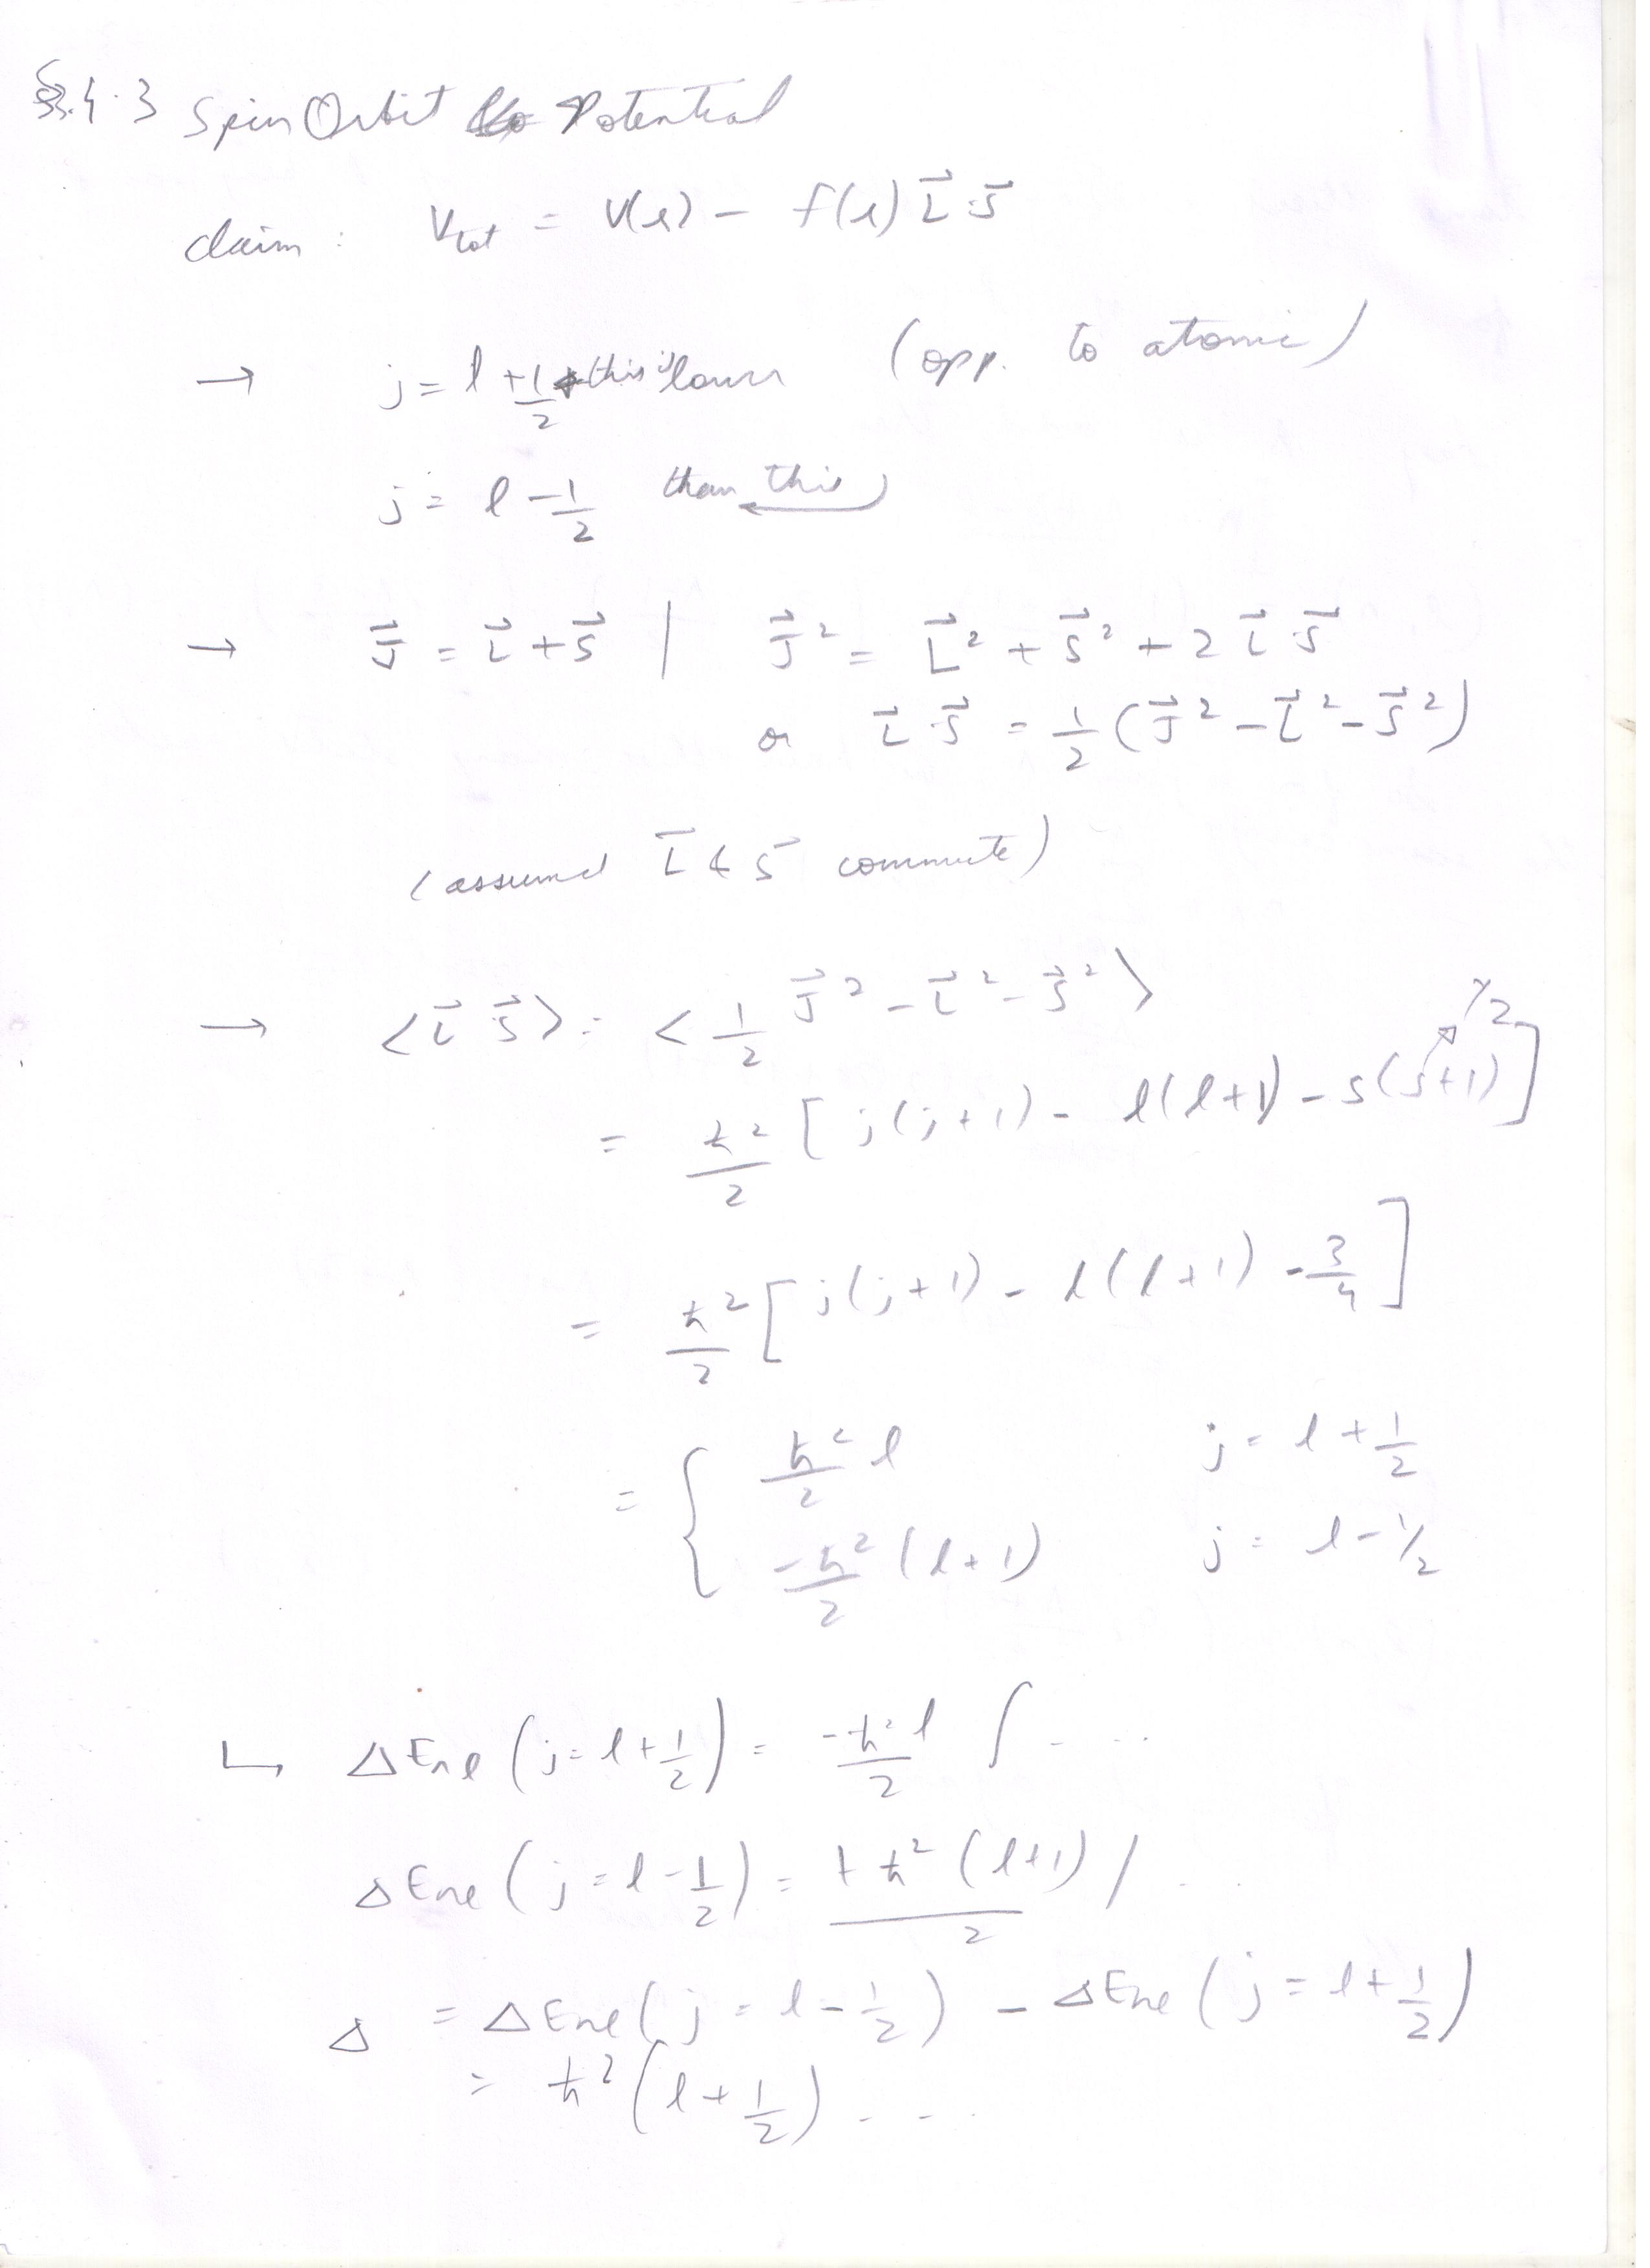 §3.4.3 Spin Orbit Potential
claim : V_tot = V(r) - f(r) L⃗·S⃗
→ j = l + 1/2 ← this is lower (opp. to atomic)
j = l - 1/2 than this
→ J⃗ = L⃗ + S⃗ | J⃗² = L⃗² + S⃗² + 2 L⃗·S⃗
or L⃗·S⃗ = 1/2 (J⃗² - L⃗² - S⃗²)
(assumed L⃗ & S⃗ commute)
→ <L⃗·S⃗> = <1/2 J⃗² - L⃗² - S⃗²>
= ħ²/2 [j(j+1) - l(l+1) - s(s+1)] 1/2
= ħ²/2 [j(j+1) - l(l+1) - 3/4]
= { ħ²/2 l j = l + 1/2
-ħ²/2 (l+1) j = l - 1/2
↳ ΔE_nl (j = l + 1/2) = -ħ² l/2 ∫ ....
ΔE_nl (j = l - 1/2) = +ħ² (l+1)/2 ∫ ...
Δ = ΔE_nl (j = l - 1/2) - ΔE_nl (j = l + 1/2)
= ħ² (l + 1/2) ...